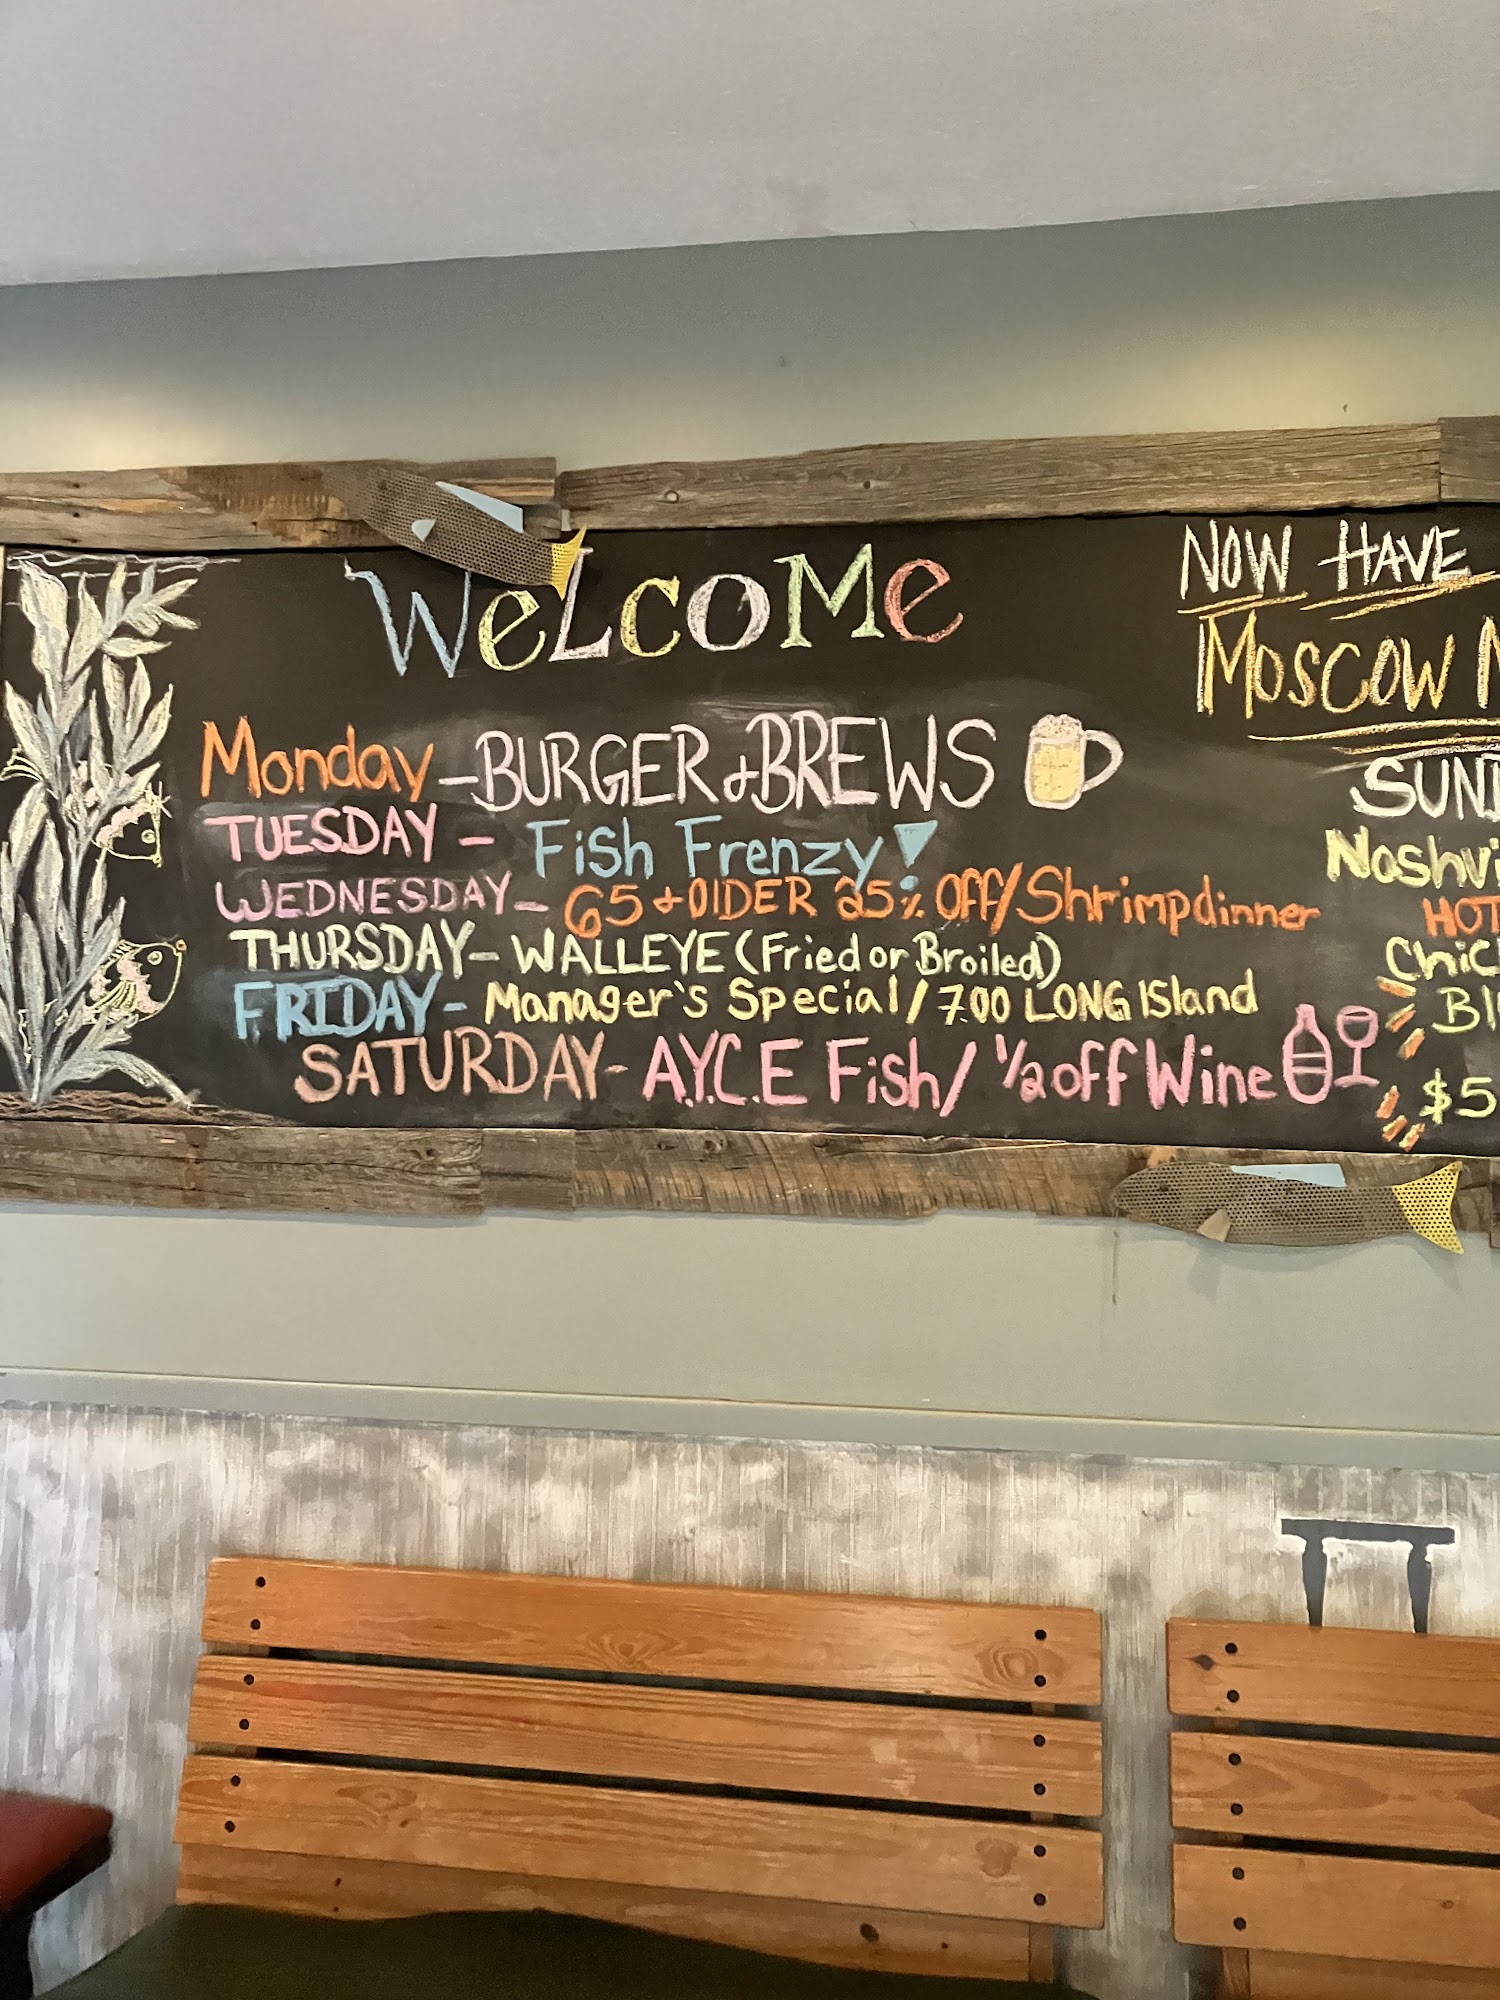 WeLcoMe
Monday - BURGER & BREWS
TUESDAY - Fish Frenzy!
WEDNESDAY - 65 + OlDER 25% OFF/Shrimp dinner
THURSDAY - WALLEYE (Fried or Broiled)
FRIDAY - Manager's Special / 7.00 LONG ISland
SATURDAY - A.Y.C.E Fish / 1/2 off Wine
NOW HAVE
MOSCOW
HOT
$5